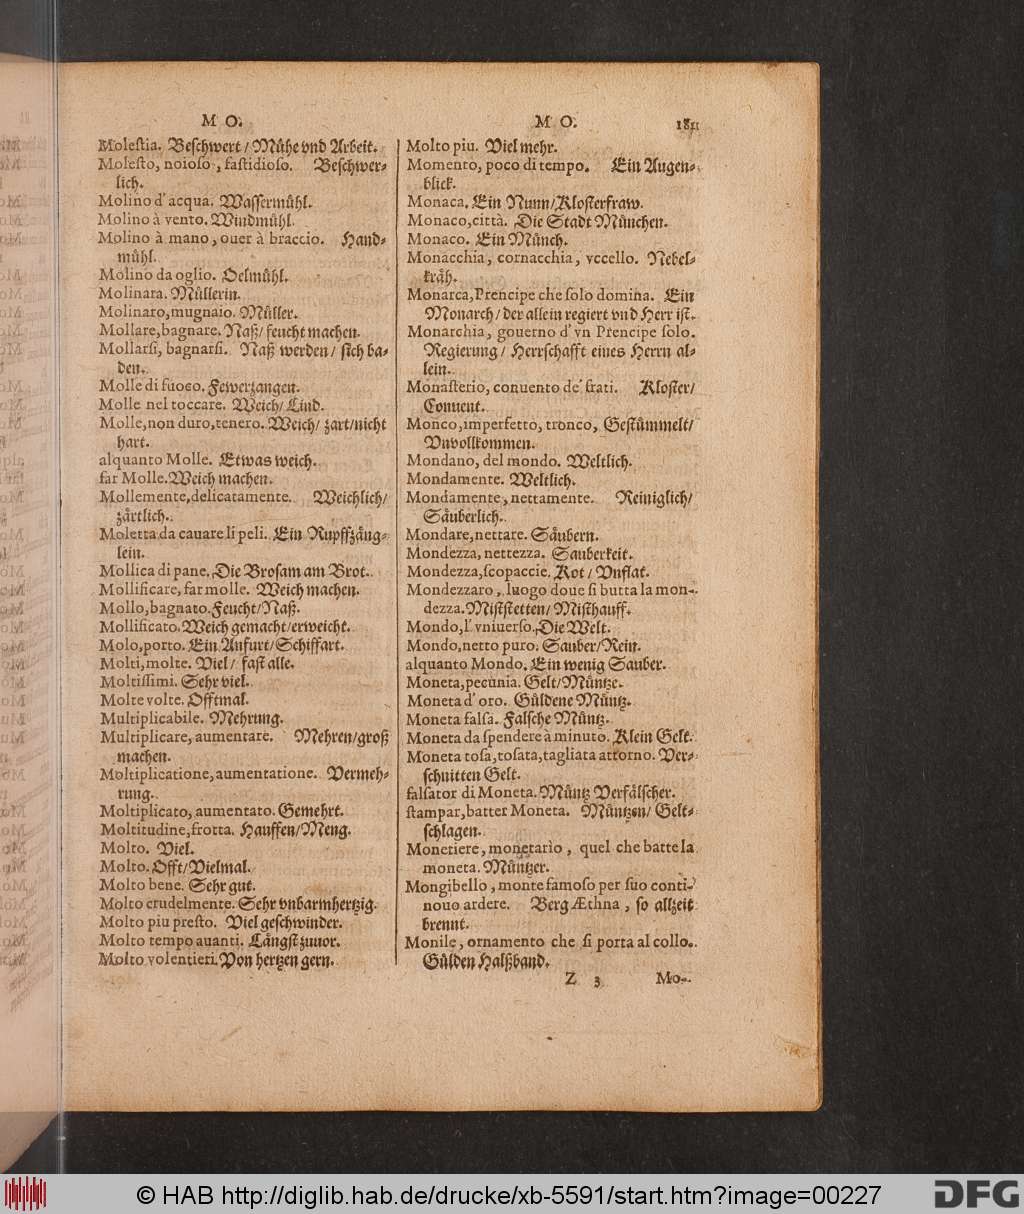 M O.
Molestia. Beschwert / Mühe vnd Arbeit.
Molesto, noioso, fastidioso. Beschwer-
lich.
Molino d' acqua. Wassermühl.
Molino à vento. Windmühl.
Molino à mano, ouer à braccio. Hand-
mühl.
Molino da oglio. Oelmühl.
Molinara. Müllerin.
Molinaro, mugnaio. Müller.
Mollare, bagnare. Naß/ feucht machen.
Mollarsi, bagnarsi. Naß werden / sich ba-
den.
Molle di fuoco. Fewerzangen.
Molle nel toccare. Weich/ Lind.
Molle, non duro, tenero. Weich/ zart/nicht
hart.
alquanto Molle. Etwas weich.
far Molle. Weich machen.
Mollemente, delicatamente. Weichlich/
zärtlich.
Moletta da cauare li peli. Ein Rupffzäng-
lein.
Mollica di pane. Die Brosam am Brot.
Mollificare, far molle. Weich machen.
Mollo, bagnato. Feucht/Naß.
Mollificato. Weich gemacht/erweicht.
Molo, porto. Ein Anfurt/Schiffart.
Molti, molte. Viel / fast alle.
Moltissimi. Sehr viel.
Molte volte. Offtmal.
Multiplicabile. Mehrung.
Multiplicare, aumentare. Mehren/groß
machen.
Moltiplicatione, aumentatione. Vermeh-
rung.
Moltiplicato, aumentato. Gemehrt.
Moltitudine, frotta. Hauffen/Meng.
Molto. Viel.
Molto. Offt/Vielmal.
Molto bene. Sehr gut.
Molto crudelmente. Sehr vnbarmhertzig.
Molto piu presto. Viel geschwinder.
Molto tempo auanti. Längst zuuor.
Molto volentieri. Von hertzen gern.
M O. 181
Molto piu. Viel mehr.
Momento, poco di tempo. Ein Augen-
blick.
Monaca. Ein Nunn/Klosterfraw.
Monaco, città. Die Stadt München.
Monaco. Ein Münch.
Monacchia, cornacchia, vccello. Nebel-
kräh.
Monarca, Prencipe che solo domina. Ein
Monarch / der allein regiert vnd Herr ist.
Monarchia, gouerno d' vn Prencipe solo.
Regierung / Herrschafft eines Herrn al-
lein.
Monasterio, conuento de' frati. Kloster/
Conuent.
Monco, imperfetto, tronco, Gestümmelt/
Vnvollkommen.
Mondano, del mondo. Weltlich.
Mondamente. Weltlich.
Mondamente, nettamente. Reiniglich/
Säuberlich.
Mondare, nettare. Säubern.
Mondezza, nettezza. Sauberkeit.
Mondezza, scopaccie. Kot / Vnflat.
Mondezzaro, luogo doue si butta la mon-
dezza. Miststetten/ Misthauff.
Mondo, l' vniuerso. Die Welt.
Mondo, netto puro. Sauber/Rein.
alquanto Mondo. Ein wenig Sauber.
Moneta, pecunia. Gelt/Müntze.
Moneta d' oro. Güldene Müntz.
Moneta falsa. Falsche Müntz.
Moneta da spendere à minuto. Klein Gelt.
Moneta tosa, tosata, tagliata attorno. Ver-
schnitten Gelt.
falsator di Moneta. Müntz Verfälscher.
stampar, batter Moneta. Müntzen/ Gelt-
schlagen.
Monetiere, monetario, quel che batte la
moneta. Müntzer.
Mongibello, monte famoso per suo conti-
nouo ardere. Berg Æthna, so allzeit
brennt.
Monile, ornamento che si porta al collo.
Gülden Halßband.
Z 3 Mo-
© HAB http://diglib.hab.de/drucke/xb-5591/start.htm?image=00227
DFG